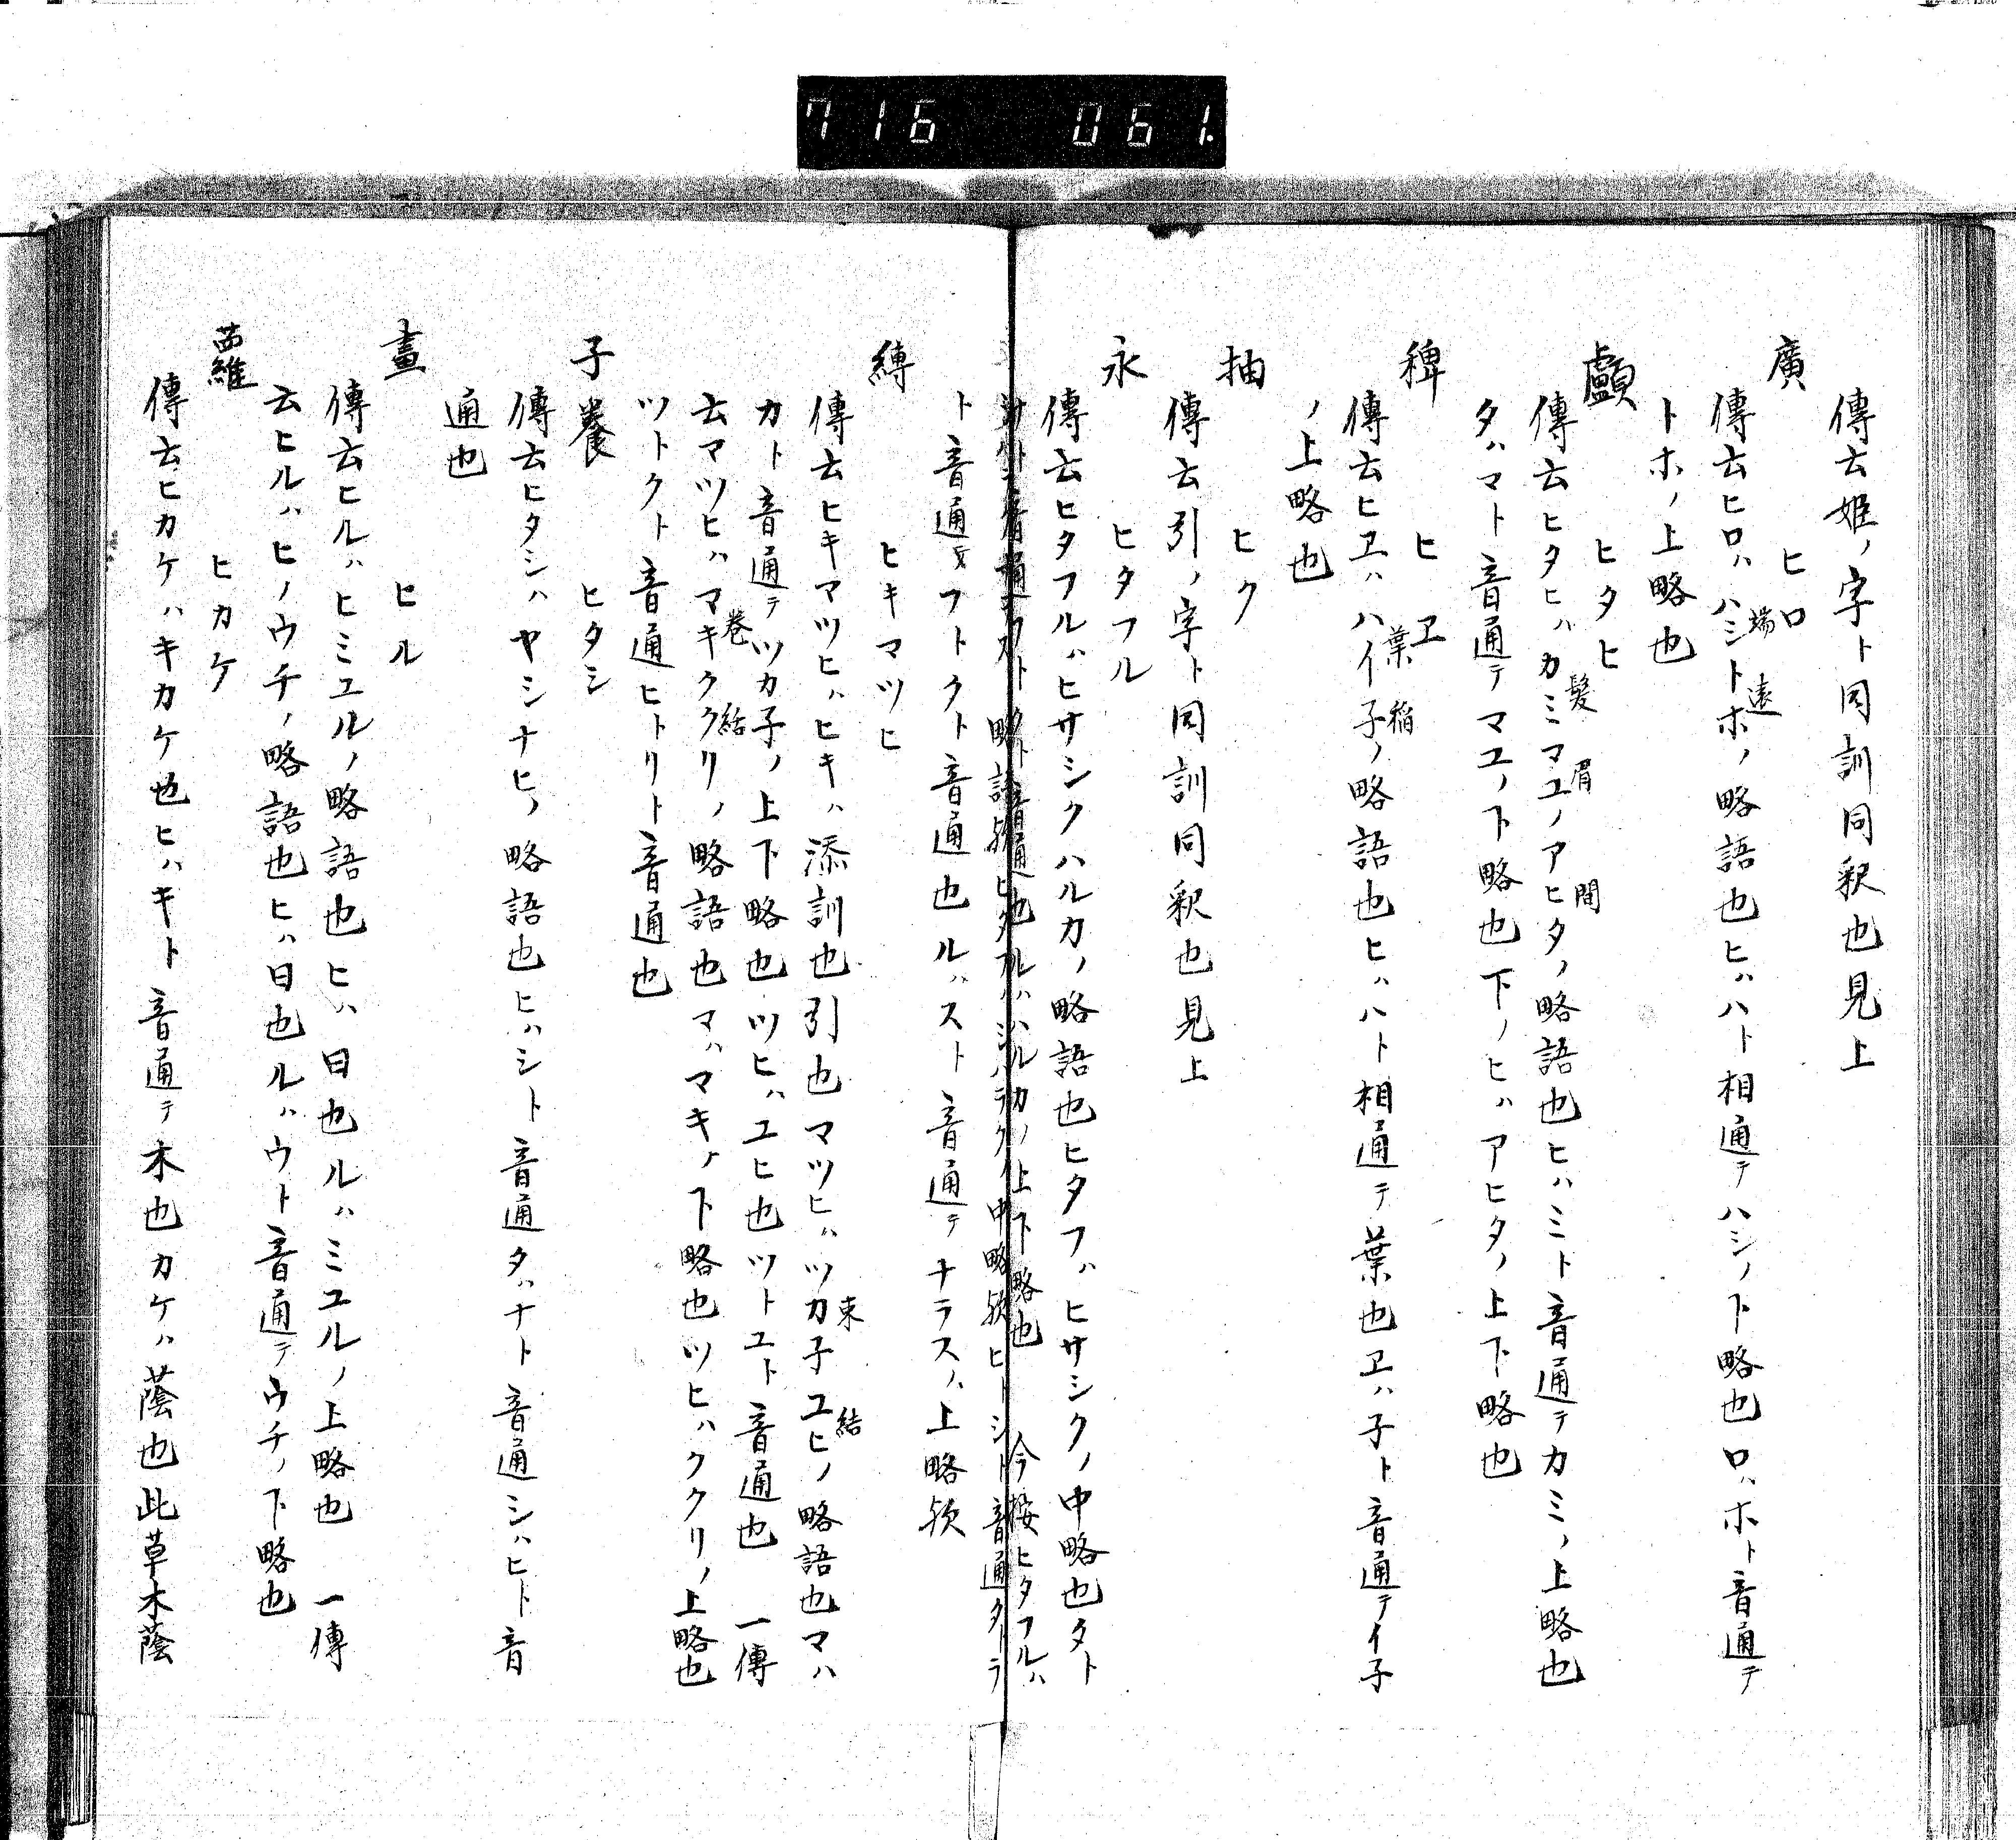 716 061.
傳云姫ノ字ト同訓同釈也見上
廣 ヒロ
傳云ヒロハハシトホノ略語也ヒハハト相通テハシノ下略也ロハホト音通テ
端 遠
トホノ上略也
顱 ヒタヒ
傳云ヒタヒハカミマユノアヒタノ略語也ヒハミト音通テカミノ上略也
髮 眉 間
タハマト音通テマユノ下略也下ノヒハアヒタノ上下略也
稗 ヒヱ
傳云ヒヱハハイ子ノ略語也ヒハハト相通テ葉也ヱハ子ト音通テイ子
葉 稲
ノ上略也
抽 ヒク
傳云引ノ字ト同訓同釈也見上
永 ヒタフル
傳云ヒタフルハヒサシクハルカノ略語也ヒタフハヒサシクノ中略也タト
ルハハルカノ上下略也 今按ヒタフルハ
ト音通フトクト音通也ルハスト音通テナラスノ上略欤
縛 ヒキマツヒ
傳云ヒキマツヒハヒキハ添訓也引也マツヒハツカ子ユヒノ略語也マハ
束 結
カト音通テツカ子ノ上下略也ツヒハユヒ也ツトユト音通也 一傳
云マツヒハマキククリノ略語也マハマキノ下略也ツヒハククリノ上略也
巻 結
ツトクト音通ヒトリト音通也
子養 ヒタシ
傳云ヒタシハヤシナヒノ略語也ヒハシト音通タハナト音通シハヒト音
通也
晝 ヒル
傳云ヒルハヒミユルノ略語也ヒハ日也ルハミユルノ上略也 一傳
云ヒルハヒノウチノ略語也ヒハ日也ルハウト音通テウチノ下略也
蘿 ヒカケ
傳云ヒカケハキカケ也ヒハキト音通テ木也カケハ蔭也此草木蔭